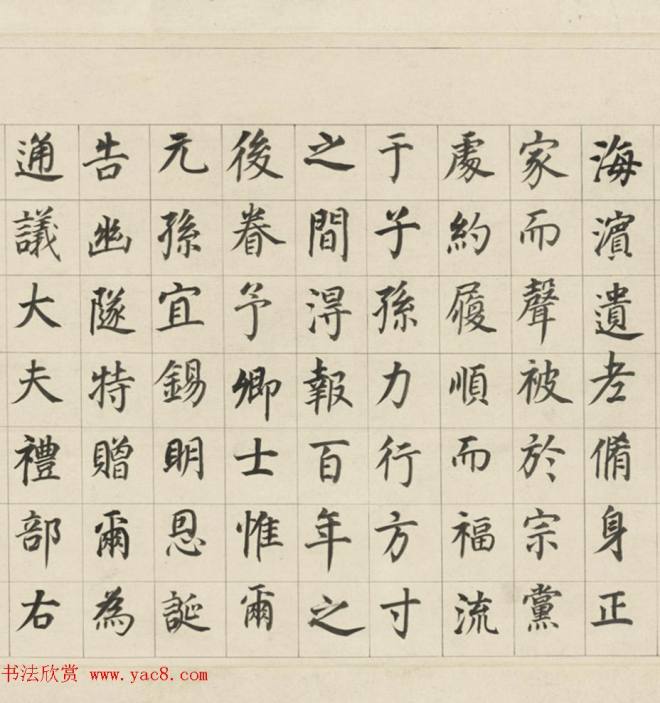 海濱遺老脩身正
家而聲被於宗黨
處約履順而福流
于子孫力行方寸
之間淂報百年之
後眷予卿士惟爾
元孫宜錫明恩誕
告幽隧特贈爾為
通議大夫禮部右
书法欣赏 www.yac8.com